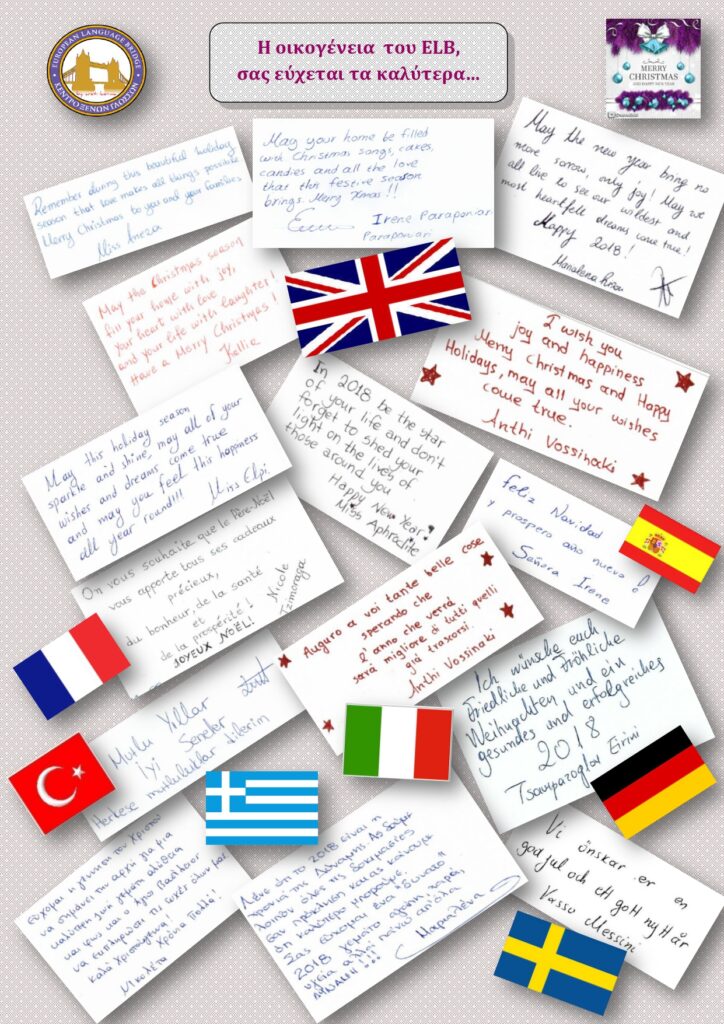 Η οικογένεια του ELB,
σας εύχεται τα καλύτερα...
EUROPEAN LANGUAGE BRIDGE
ΚΕΝΤΡΟ ΞΕΝΩΝ ΓΛΩΣΣΩΝ
MERRY
CHRISTMAS
AND HAPPY NEW YEAR
Remember during this beautiful holiday
season that love makes all things possible
Merry Christmas to you and your families
Miss
May your home be filled
with Christmas songs, cakes,
candies and all the love
that this festive season
brings. Merry Xmas!!
Irene Paraponiari
Paraponiari
May the new year bring no
more sorrow, only joy! May we
all live to see our wildest and
most heartfelt dreams come true!
Happy 2018!
May the Christmas season
fill your home with joy,
your heart with love
and your life with laughter!
Have a Merry Christmas!
Kellie
I wish you
joy and happiness
Merry Christmas and Happy
Holidays, may all your wishes
come true.
Anthi Vossinaki
In 2018 be the star
of your life and don't
forget to shed your
light on the lives of
those around you
Happy New Year!
Miss Aphrodite
May this holiday season
sparkle and shine, may all of your
wishes and dreams come true
and may you feel this happiness
all year round!!!
Miss Elpi.
Feliz Navidad
y prospero año nuevo
Señora Irene
On vous souhaite que le Père-Noël
vous apporte tous ses cadeaux
précieux,
du bonheur, de la santé
et
de la prospérité!
JOYEUX NOËL!
Nicole
Tzimoraga
Auguro a voi tante belle cose
sperando che
l'anno che verrà
sarà migliore di tutti quelli
già trascorsi.
Anthi Vossinaki
Ich wünsche euch
Friedliche und Fröhliche
Weihnachten und ein
gesundes und erfolgreiches
2018
Eirini
Mutlu Yıllar
İyi Seneler
Herkese mutluluklar dilerim
Εύχομαι η γέννηση του Χριστού
να σημάνει την αρχή για μια
καλύτερη ζωή γεμάτη αλήθεια
και φως και ο Άγιος Βασίλειος
να εκπληρώσει τις ευχές όλων μας
Καλά Χριστούγεννα!
Χρόνια Πολλά!
Νικολέτα
Λένε ότι το 2018 είναι η
χρονιά της Δύναμης. Ας δούμε
λοιπόν όλες τις δοκιμασίες
σαν πρόκληση και ας κάνουμε
ό,τι καλύτερο μπορούμε.
Σας εύχομαι ένα "δυνατό"
2018 γεμάτο αγάπη, χαρά,
υγεία
ΔΥΝΑΜΗ!!!
Μαριαλένα
Vi önskar er en
god jul och ett gott nytt år
Vassw Messini